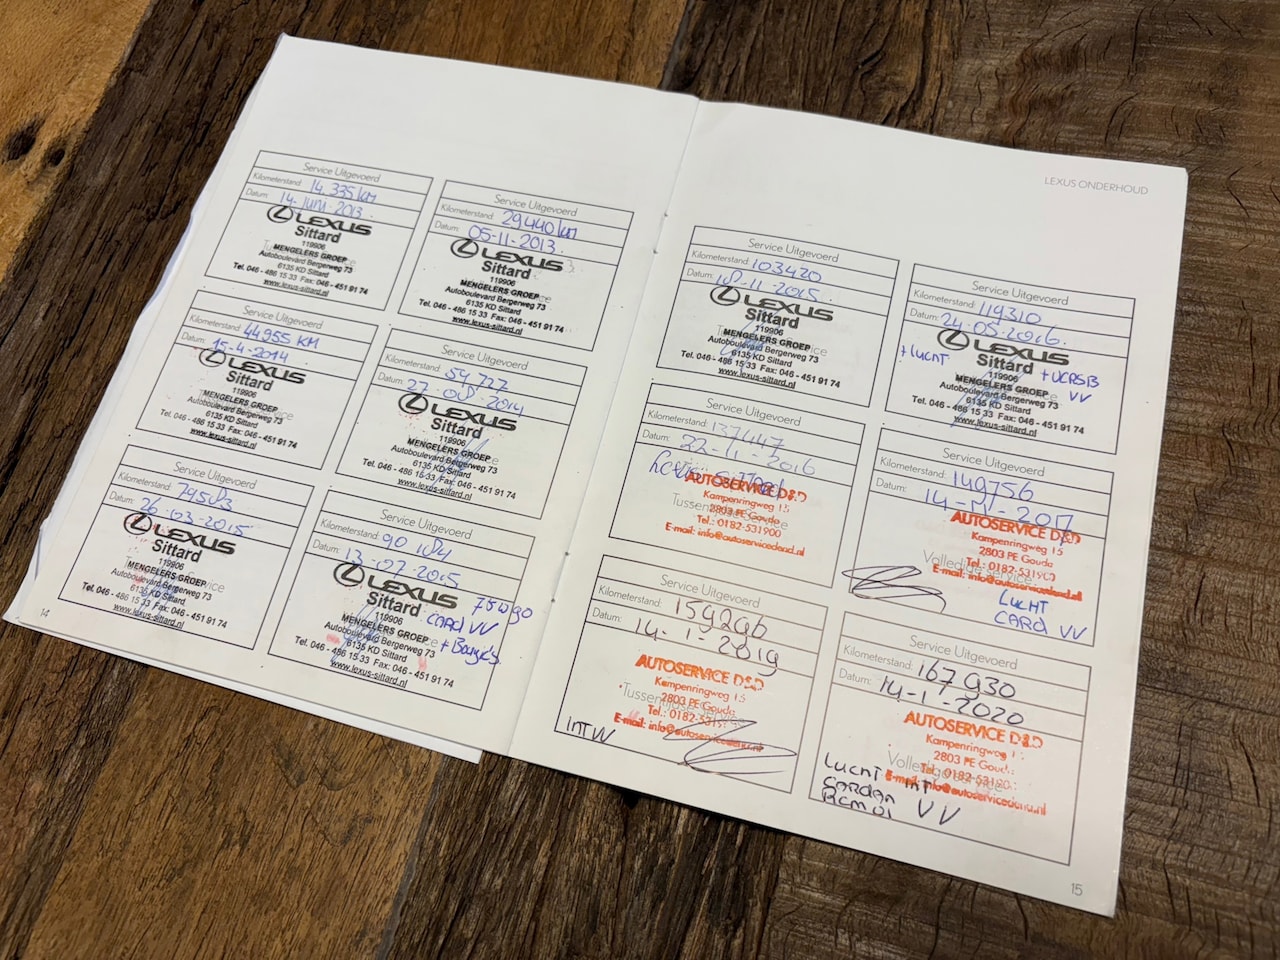 Service Uitgevoerd
Kilometerstand: 14.335 km
Datum: 14. juni. 2013.
LEXUS
Sittard
119906
MENGELERS GROEP
Autoboulevard Bergerweg 73
6135 KD Sittard
Tel. 046 - 486 15 33 Fax: 046 - 451 91 74
www.lexus-sittard.nl
Service Uitgevoerd
Kilometerstand: 29440 km
Datum: 05-11-2013.
LEXUS
Sittard
119906
MENGELERS GROEP
Autoboulevard Bergerweg 73
6135 KD Sittard
Tel. 046 - 486 15 33 Fax: 046 - 451 91 74
www.lexus-sittard.nl
Service Uitgevoerd
Kilometerstand: 44955 KM
Datum: 15-4-2014
LEXUS
Sittard
119906
MENGELERS GROEP
Autoboulevard Bergerweg 73
6135 KD Sittard
Tel. 046 - 486 15 33 Fax: 046 - 451 91 74
www.lexus-sittard.nl
Service Uitgevoerd
Kilometerstand: 59722
Datum: 27-08-2014
LEXUS
Sittard
119906
MENGELERS GROEP
Autoboulevard Bergerweg 73
6135 KD Sittard
Tel. 046 - 486 15 33 Fax: 046 - 451 91 74
www.lexus-sittard.nl
Service Uitgevoerd
Kilometerstand: 79583
Datum: 26-03-2015
LEXUS
Sittard
119906
MENGELERS GROEP
Autoboulevard Bergerweg 73
6135 KD Sittard
Tel. 046 - 486 15 33 Fax: 046 - 451 91 74
www.lexus-sittard.nl
Service Uitgevoerd
Kilometerstand: 90184
Datum: 13-07-2015
LEXUS
Sittard
119906
MENGELERS GROEP
Autoboulevard Bergerweg 73
6135 KD Sittard
Tel. 046 - 486 15 33 Fax: 046 - 451 91 74
www.lexus-sittard.nl
75W90
CARd VV
+ Bougie's
14
LEXUS ONDERHOUD
Service Uitgevoerd
Kilometerstand: 103420
Datum: 18-11-2015
LEXUS
Sittard
119906
MENGELERS GROEP
Autoboulevard Bergerweg 73
6135 KD Sittard
Tel. 046 - 486 15 33 Fax: 046 - 451 91 74
www.lexus-sittard.nl
Service Uitgevoerd
Kilometerstand: 119310
Datum: 24-05-2016
LEXUS
+ LUCHT
Sittard
VV
119906
MENGELERS GROEP
Autoboulevard Bergerweg 73
6135 KD Sittard
Tel. 046 - 486 15 33 Fax: 046 - 451 91 74
www.lexus-sittard.nl
Service Uitgevoerd
Kilometerstand: 137447
Datum: 22-11-2016
AUTOSERVICE D&D
Kampenringweg 15
2803 PE Gouda
Tussentijdse service
Tel.: 0182-531900
E-mail: info@autoservicedend.nl
Service Uitgevoerd
Kilometerstand: 149756
Datum: 14-11-2017
AUTOSERVICE D&D
Kampenringweg 15
2803 PE Gouda
Volledige service
Tel.: 0182-531900
E-mail: info@autoservicedend.nl
LUCHT
CARd VV
Service Uitgevoerd
Kilometerstand: 159296
Datum: 14-1-2019
AUTOSERVICE D&D
Kampenringweg 15
2803 PE Gouda
Tussentijdse service
Tel.: 0182-531900
E-mail: info@autoservicedend.nl
INTW
Service Uitgevoerd
Kilometerstand: 167930
Datum: 14-1-2020
AUTOSERVICE D&D
Kampenringweg 15
2803 PE Gouda
Volledige service
Tel.: 0182-531900
E-mail: info@autoservicedend.nl
LUCHT INT
Cardan
VV
15